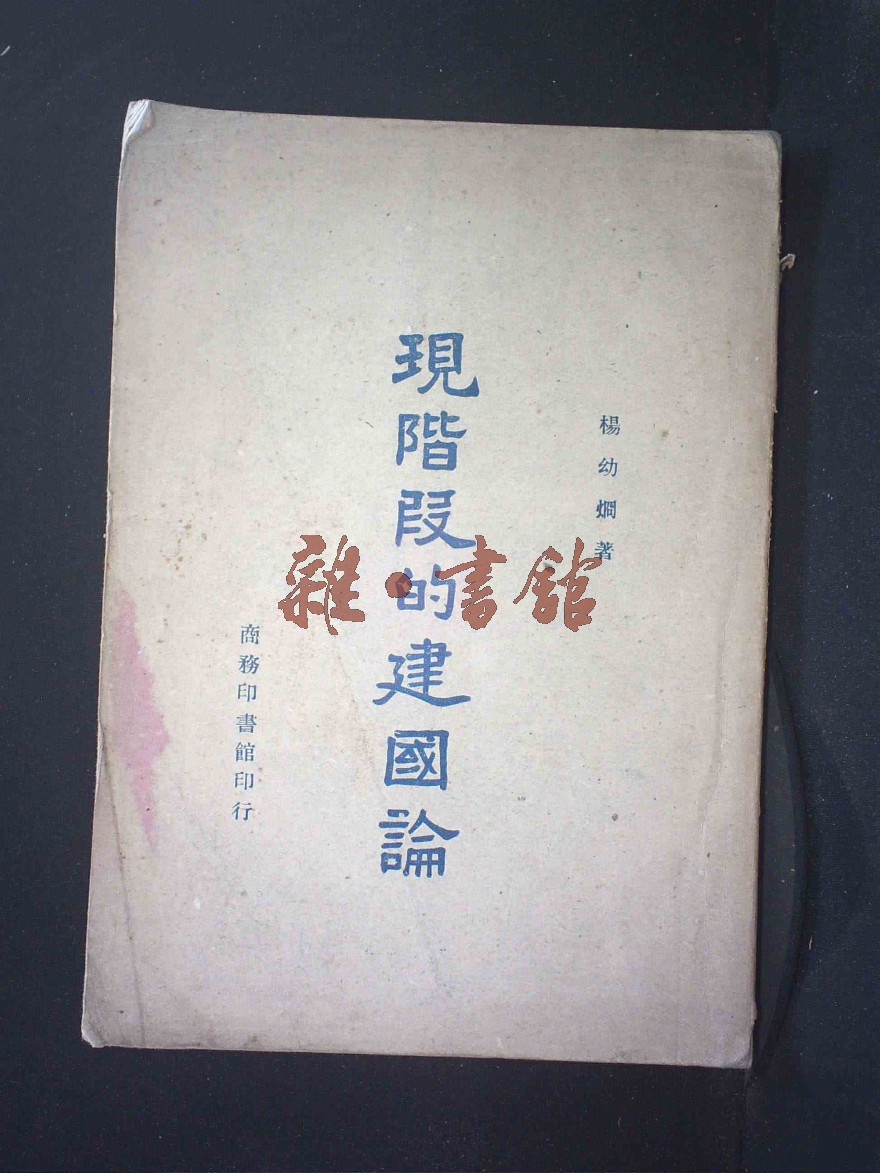 楊幼烱著
現階段的建國論
商務印書館印行
雜·書館